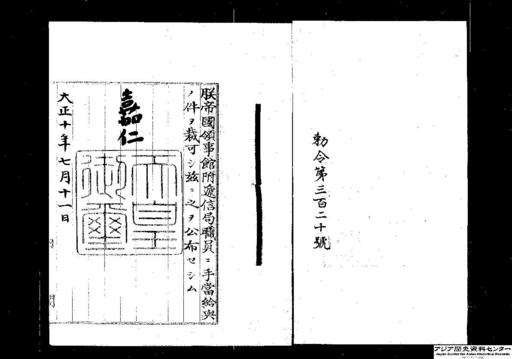 勅令第三百二十號
朕帝國領事館附遞信局職員ニ手當給與
ノ件ヲ裁可シ茲ニ之ヲ公布セシム
嘉仁
天皇御璽
大正十年七月十一日
アジア歴史資料センター
Japan Center for Asian Historical Records